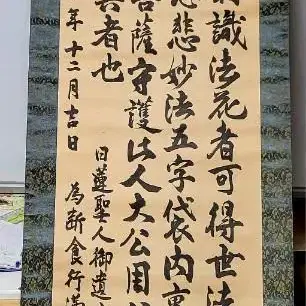 識法花者可得世法
悲妙法五字袋内裹
菩薩守護此人大公周
異者也
日蓮聖人御遺
年十二月吉日
為断食行満